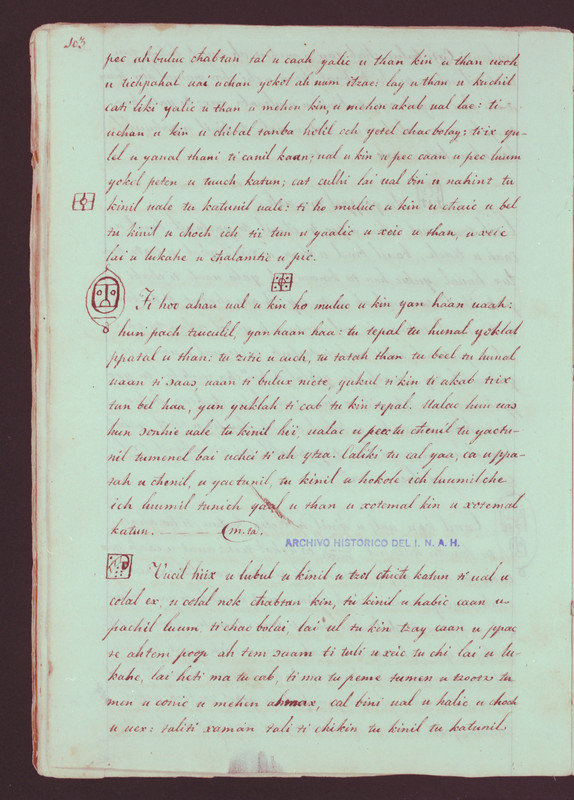 103
pec ah buluc chabtan tal u caah yalic u than kin u than uooh
u tichpahal uai uchan yokol ah num itzae: lay u than u kuchil
cati liki yalic u than u mehen kin, u mehen akab ual lae: ti
uchan u kin u chibal tanba holil och yetel chacbolay: ti ix yu-
lel u yanal thani ti canil kaan; ual u kin u pec caan u pec luum
yokol peten u tunich katun; cat culhi lai ual bin u nahint tu
kinil uale tu katunil uale: ti ho muluc u kin u chaic u bel
tu kinil u choch ich tii tun u yaalic u xeic u than, u xeic
lai u lukahe u chalamtic u pic.
Ti hoo ahau ual u kin ho muluc u kin yan haan uaah:
hun pach tzuculil, yan haan haa: tu tepal tu hunal yoklal
ppatal u than: tu zitic u cuch, tu tatah than tu beel tu hunal
uaun ti saas uaan ti bulux nicte, yukul ti kin ti akab tiix
tan bel haa, yun yuklah ti cab tu kin tepal. Ualac hun uas
hun sonhie uale tu kinil hii, ualac u pectu chenil tu yactu-
nil tumenel bai uchci ti ah ytza. Caliki tu cal yaa, ca u ppa-
tah u chenil, u yactunil, tu kinil u hokole ich luumil che
ich luumil tunich yaal u than u xotemal kin u xotemal
katun. m.ta.
ARCHIVO HISTORICO DEL I. N. A. H.
Uucil hiix u lubul u kinil u tzol chich katun ti ual u
colal ex, u colal nok chabtan kin, tu kinil u habic caan u-
pachil luum ti chac bolai, lai ul tu kin tzay caan u ppac
te ahtem poop ah tem saam ti tuli u xiic tu chi lai u lu-
kahe, lai heti ma tu cab, ti ma tu peme tumen u tzootz tu
men u conic u mehen ahmax, cal bini ual u halic u choch
u uex: taliti xaman tali ti chikin tu kinil tu katunil